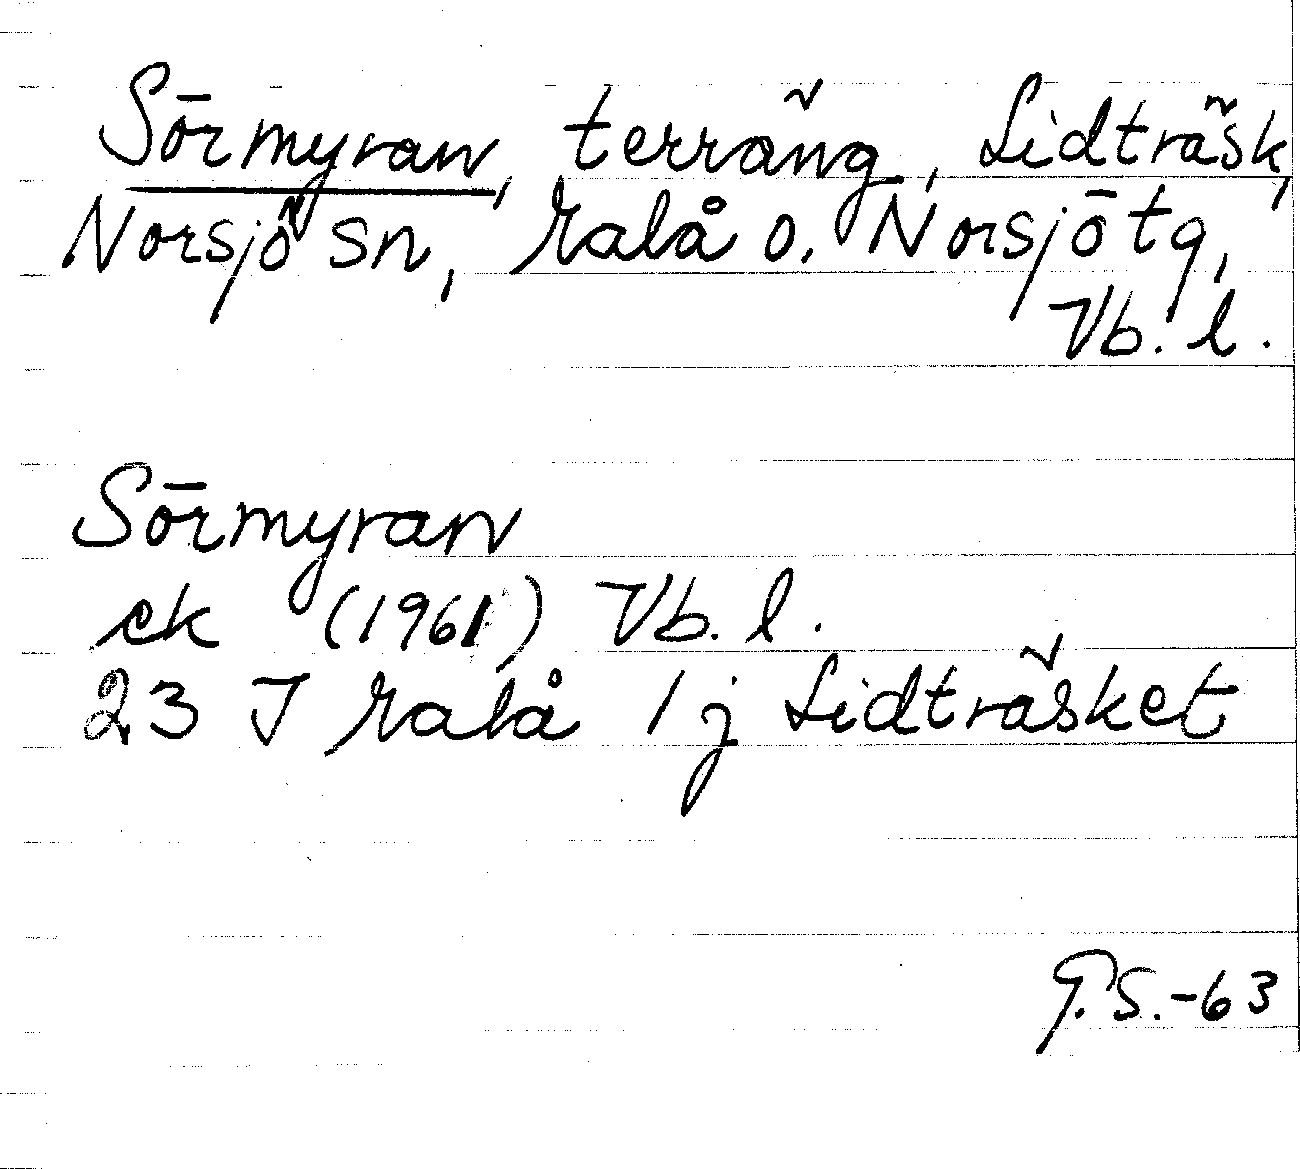 Sörmyran, terräng, Lidträsk,
Norsjö sn, Malå o. Norsjö tg,
Vb. l.
Sörmyran
ek (1961) Vb. l.
23 J Malå 1 j Lidträsket
G.S.-63